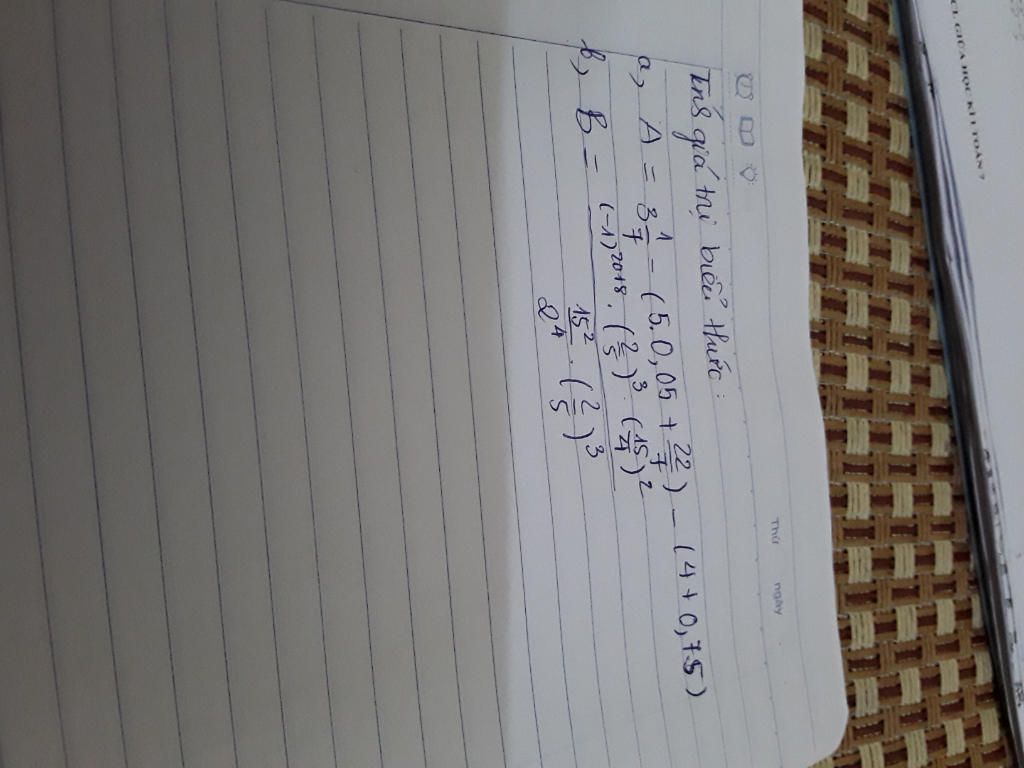 CI GIỮA HỌC KÌ I TOÁN 7
Thứ ngày
Tính giá trị biểu thức:
a, A = 3 1/7 - (5.0,05 + 22/7) - (4 + 0,75)
b, B = (-1)^2018 . (2/5)^3 . (15/4)^2
15^2/2^4 . (2/5)^3